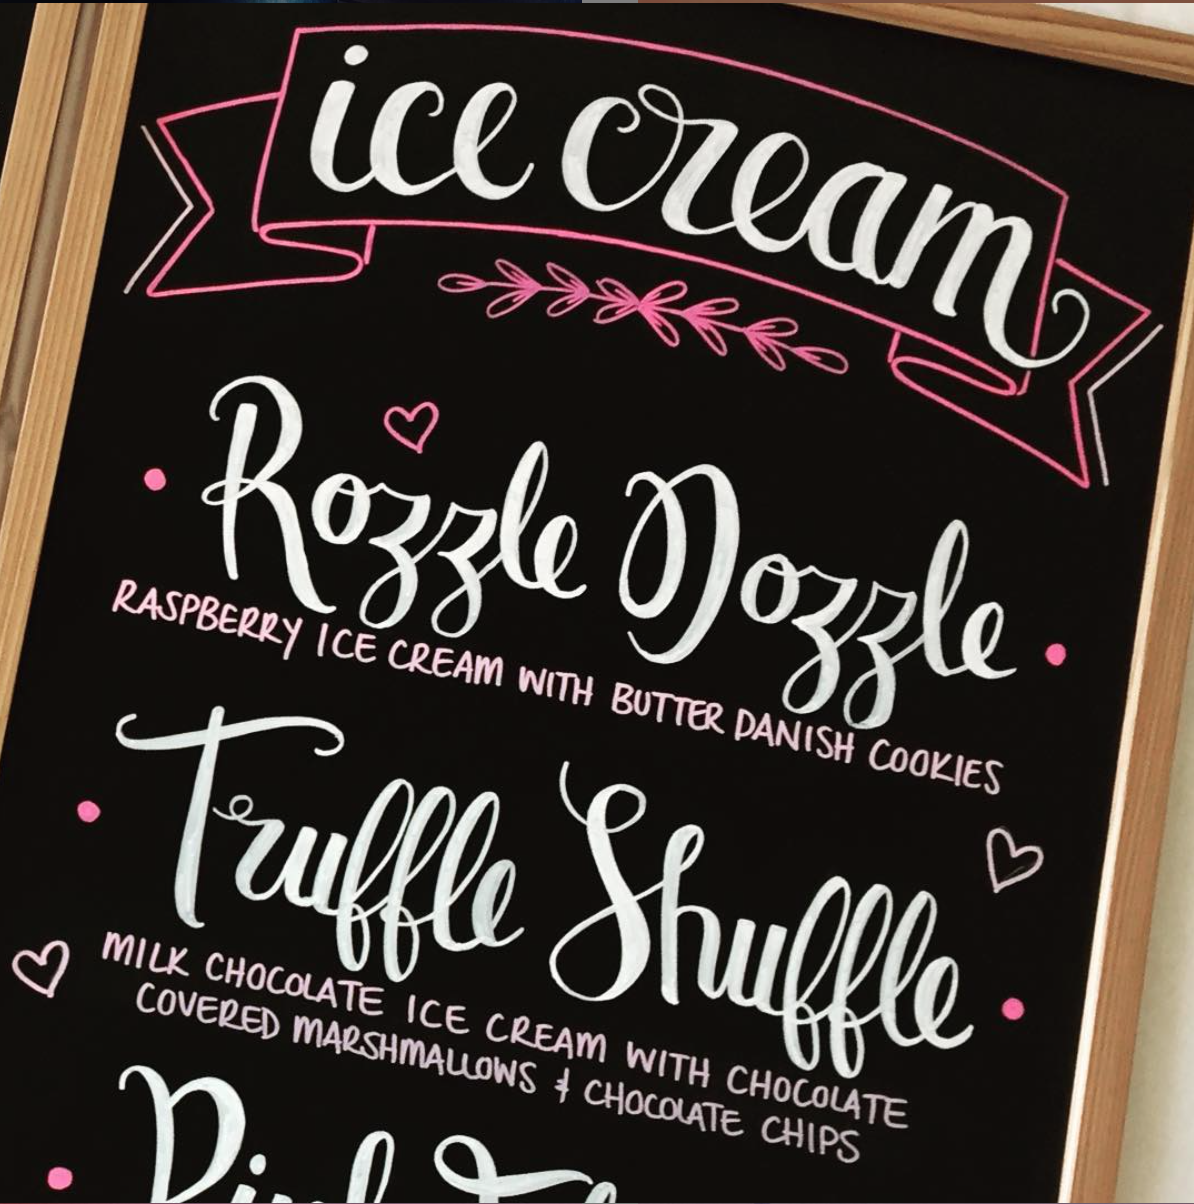 ice cream
Rozzle Dozzle
RASPBERRY ICE CREAM WITH BUTTER DANISH COOKIES
Truffle Shuffle
MILK CHOCOLATE ICE CREAM WITH CHOCOLATE
COVERED MARSHMALLOWS & CHOCOLATE CHIPS